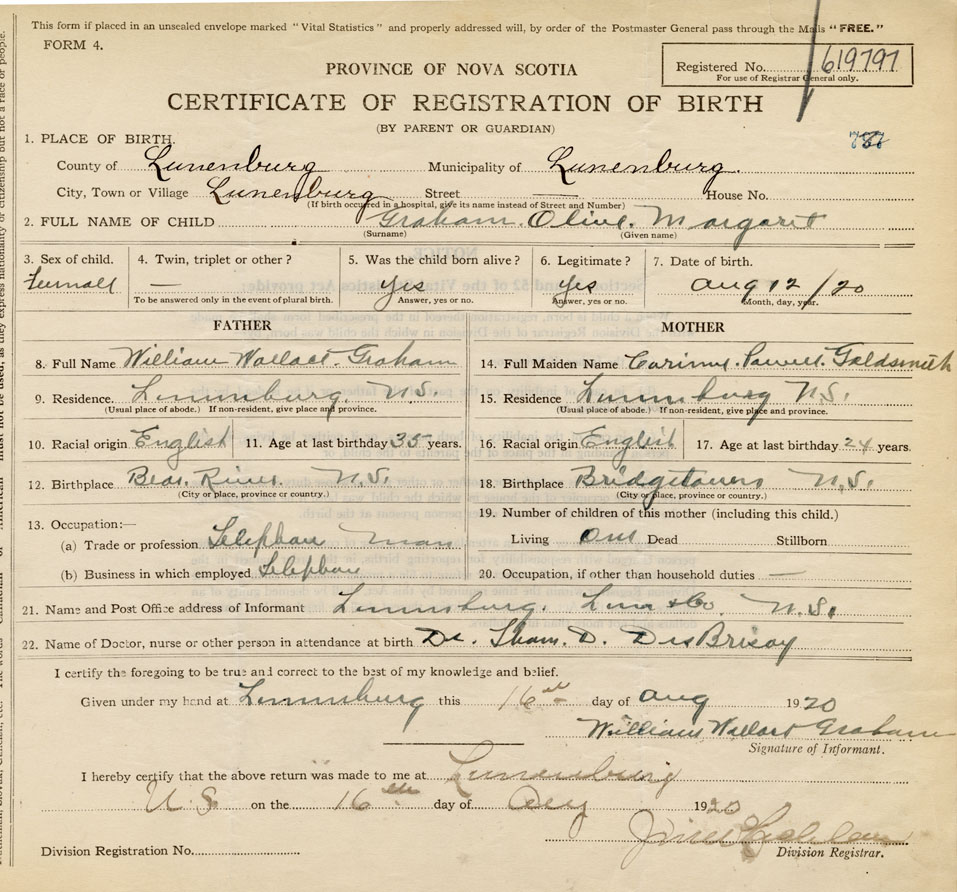 This form if placed in an unsealed envelope marked "Vital Statistics" and properly addressed will, by order of the Postmaster General pass through the Mails "FREE."
FORM 4.
Registered No. 619797
For use of Registrar General only.
PROVINCE OF NOVA SCOTIA
CERTIFICATE OF REGISTRATION OF BIRTH
(BY PARENT OR GUARDIAN)
1. PLACE OF BIRTH.
County of Lunenburg Municipality of Lunenburg.
City, Town or Village Lunenburg Street House No.
(If birth occurred in a hospital, give its name instead of Street and Number)
2. FULL NAME OF CHILD Graham. Olive. Margaret
(Surname) (Given name)
3. Sex of child. 4. Twin, triplet or other? 5. Was the child born alive? 6. Legitimate? 7. Date of birth.
— yes yes Aug 12/20
To be answered only in the event of plural birth. Answer, yes or no. Answer, yes or no. Month, day, year.
FATHER MOTHER
8. Full Name William Wallace Graham 14. Full Maiden Name Goldsmith
9. Residence. Lunenburg. N.S. 15. Residence Lunenburg N.S.
(Usual place of abode.) If non-resident, give place and province. (Usual place of abode.) If non-resident, give place and province.
10. Racial origin English 11. Age at last birthday 35 years. 16. Racial origin English 17. Age at last birthday 24 years.
12. Birthplace Bear River N.S. 18. Birthplace Bridgetown N.S.
(City or place, province or country.) (City or place, province or country.)
13. Occupation:— 19. Number of children of this mother (including this child.)
(a) Trade or profession Telephone Man Living One Dead Stillborn
(b) Business in which employed Telephone 20. Occupation, if other than household duties —
21. Name and Post Office address of Informant Lunenburg. Co. N.S.
22. Name of Doctor, nurse or other person in attendance at birth Dr. D. DesBrisay
I certify the foregoing to be true and correct to the best of my knowledge and belief.
Given under my hand at Lunenburg this 16th day of Aug 1920
William Wallace Graham
Signature of Informant.
I hereby certify that the above return was made to me at Lunenburg
N S on the 16th day of Aug 1920
Division Registration No. Division Registrar.